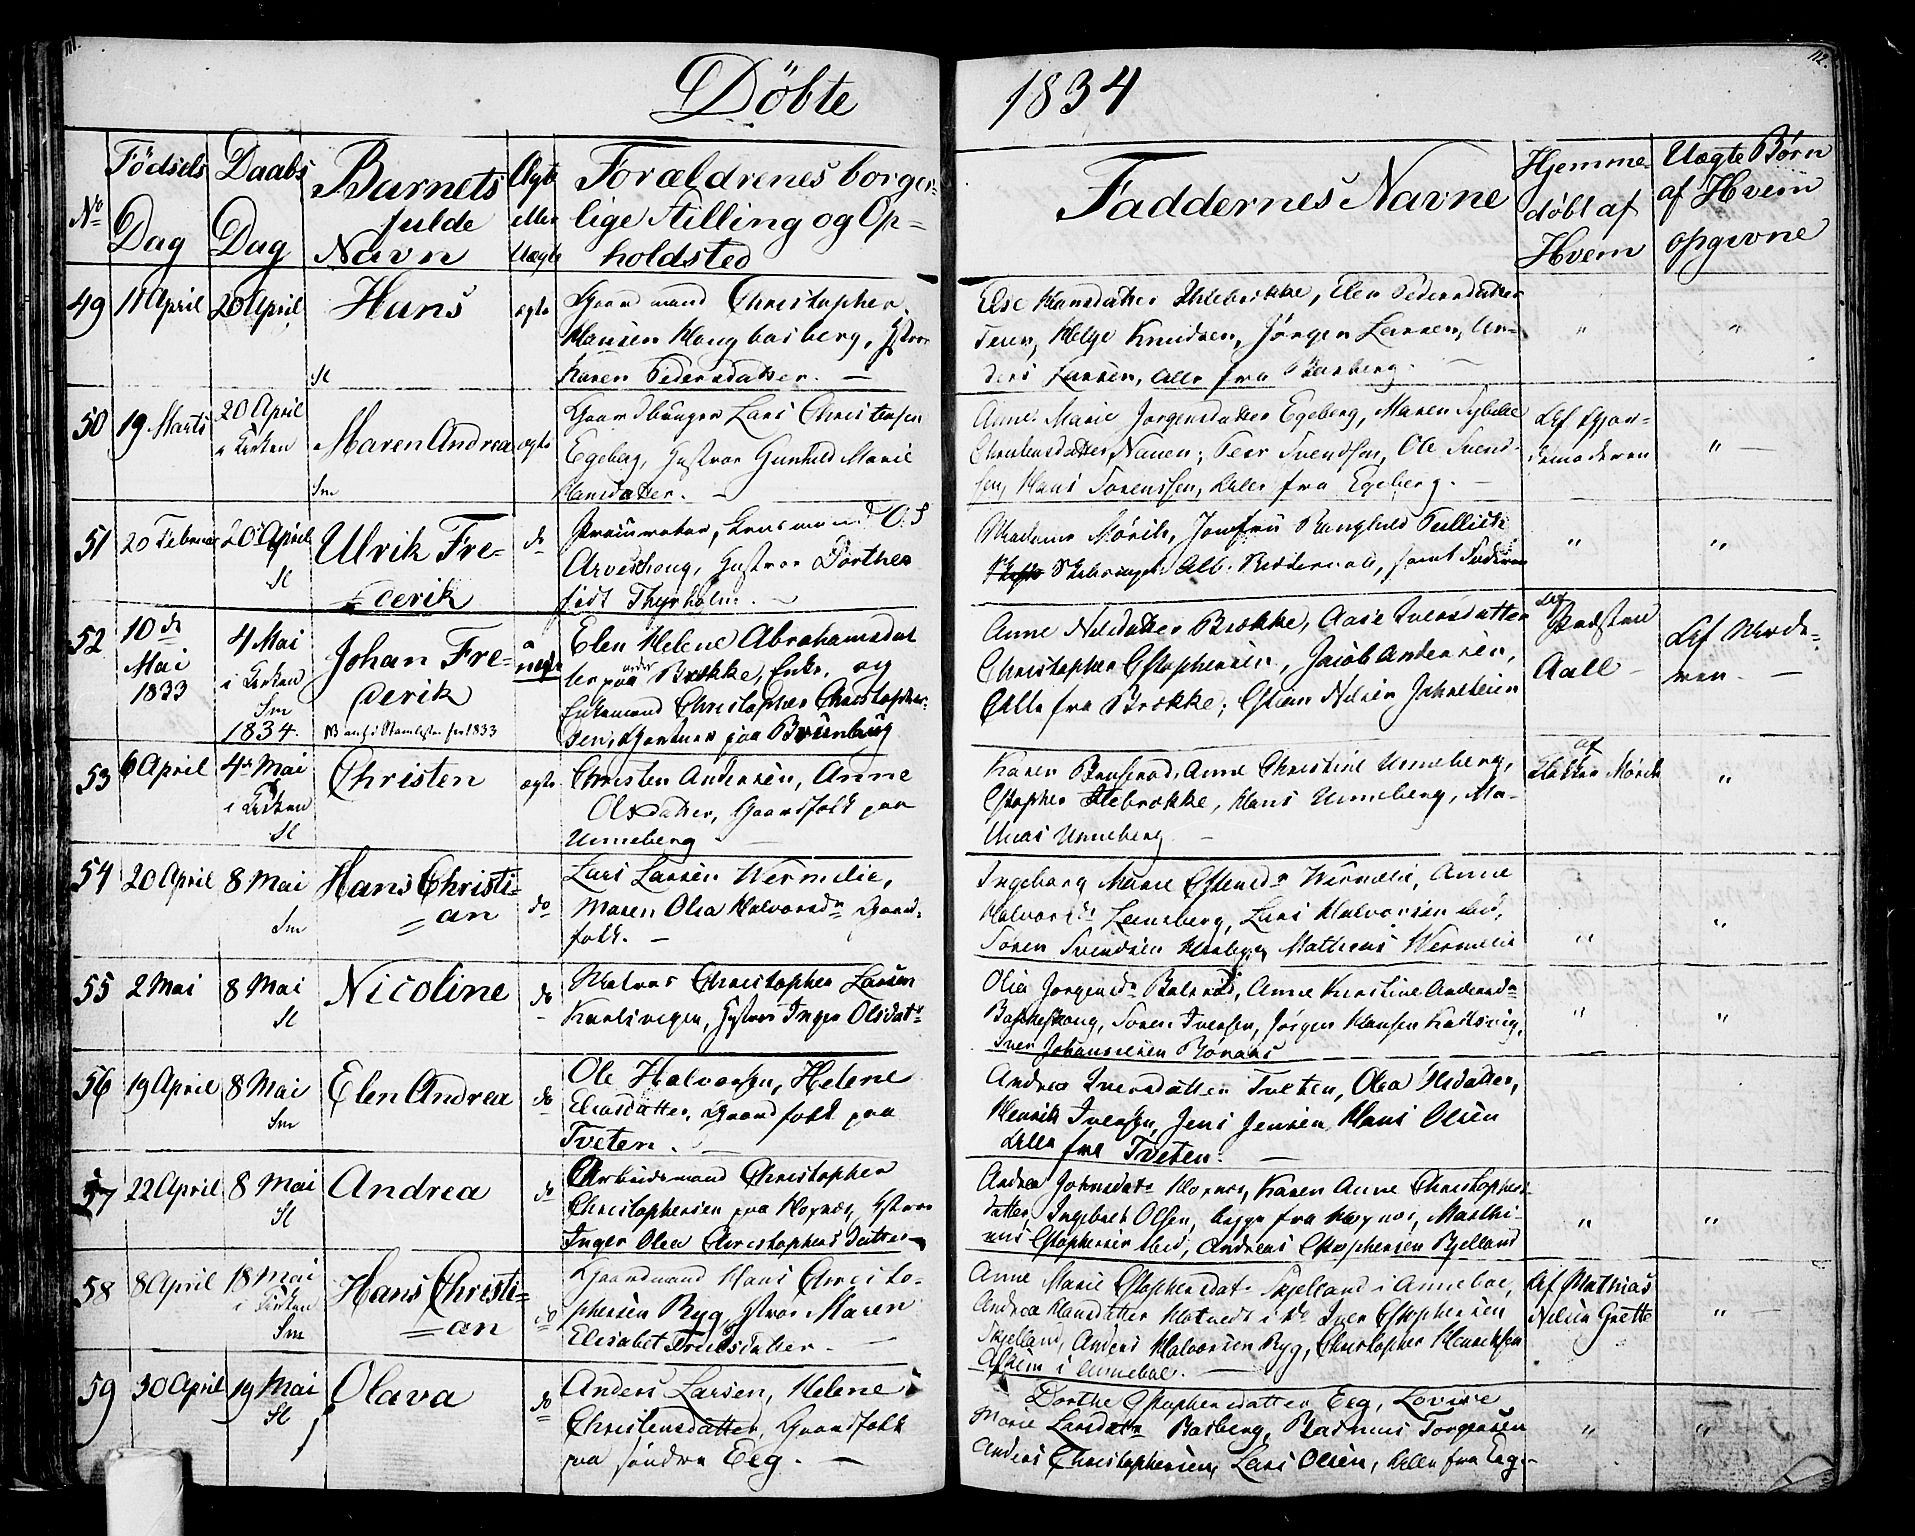 111.
112.
Döbte
1834
No
Födsels Dag
Daabs Dag
Barnets fulde Navn
Ægte eller Uægte
Forældrenes borger-
lige Stilling og Op-
holdsted
Faddernes Navne
Hjemme-
döbt af
Hvem
Uægte Børn
af Hvem
opgivne
49 11 April 20 April Hans ægte
Sl
Gaardmand Christopher
Hansen Haugbasberg, Hstroe
Karen Pedersdatter. —
Else Hansdatter Ihlebrække, Elen Pedersdatter
Teien, Helge Knudsen, Jörgen Larsen, An-
ders Larsen, Alle fra Basberg. —
50 19 Marts 20 April
i Kirken
Maren Andrea ægte
Sm
Gaardbruger Lars Christensen
Egeberg, Hustroe Gunhild Marie
Hansdatter. —
Anne Marie Jörgensdatter Egeberg, Maren Sybille
Christensdatter Nauen, Peer Svendsen, Ole Svend-
sen, Hans Sörenssen, Alle fra Egeberg. —
Af Gjor-
demoderen
51 20 Februar 20 April
Sl
Ulrik Fre-
derik
do
Arveschoug, Hustroe Dorthea
född Thyrholm. —
Madame Mörch, Jomfru Ranghild
52 10de
Mai
1833
4 Mai
i Kirken
Sm
1834.
Johan Fre-
derik
NB anf. i Stamlisten for 1833
uægte
Elen Helene Abrahamsdat
ter paa Brække, Enke, og
Enkemand Christopher Christopher-
sen, Gartner paa
Anne Nilsdatter Brække, Aase Iversdatter
Christopher Cstophersen, Jacob Andersen,
Alle fra Brække;
af Præsten
Aall —
Af Mode-
ren. —
53 6 April 4de Mai
i Kirken
Sl
Christen ægte
Christen Andersen, Anne
Olsdatter, Gaardfolk paa
Unneberg —
Karen Anne Christine Unneberg,
Cstopher Ilebrække, Hans Unneberg, Ma-
thias Unneberg —
af
Mörch
54 20 April 8 Mai
Sm
Hans Christi-
an
do
Lars Larsen Wermelie,
Maren Olea Halvorsdr Gaard-
folk. —
Ingeborg Marie Wermelie, Anne
Halvorsdr Lensberg, Lars Halvorsen ibid,
Sören Svendsen Mathias Wermelie
55 2 Mai 8 Mai
Sl
Nicoline do
Matros Christopher Larsen
Karlsvigen, Hustroe Inger Olsdatr
Olea Jörgensdr Anne Kirstine Andersdr
Bakkeskoug, Sören Iversen, Jörgen Hansen Karlsvig,
Iver Johannesen
56 19 April 8 Mai
Sm
Elen Andrea do
Ole Halvorsen, Helene
Eliasdatter, Gaardfolk paa
Tveten. —
Andrea Iversdatter Tveten, Olea Olsdatter,
Henrik Iversen, Jens Jensen, Hans Olsen
Alle fra Tveten. —
57 22 April 8 Mai
Sl
Andrea do
Arbeidsmand Christopher
Christophersen paa Hoxnæs, Hstroe
Inger Olea Christophers Datter
Andrea Johnsdatr Hoxnes, Karen Anne Christophers-
datter, Ingebret Olsen, begge fra Hoxnes, Mathi-
nus Cstophersen ibid, Andreas Cstophersen Bjelland
58 8 April 18 Mai
i Kirken
Sm
Hans Christi-
an
do
Gaardmand Hans Christo-
phersen Ryg, Hstroe Maren
Elisabet —
Anne Marie Cstophersdatr Skjelland i Anneboe,
Andrea Hansdatter i do Iver Cstophersen
Skjelland, Anders Halvorsen Ryg, Christopher Henriksen
Askim i Anneboe. —
Af Mathias
Nilsen Grette
59 30 April 19 Mai
Sl
Olava do
Anders Larsen, Helene
Christensdatter, Gaardfolk
paa söndre Eeg. —
Dorthe Cstophersdatter Eeg, Lovise
Marie Larsdatr Basberg, Rasmus Torgersen
Anders Christophersen, Lars Olsen, Alle fra Eeg —